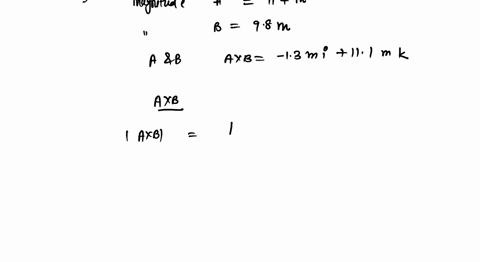 magnitude =
" B = 9.8 m
A & B AXB = -1.3 m i + 11.1 m k
AXB
| AXB| = |